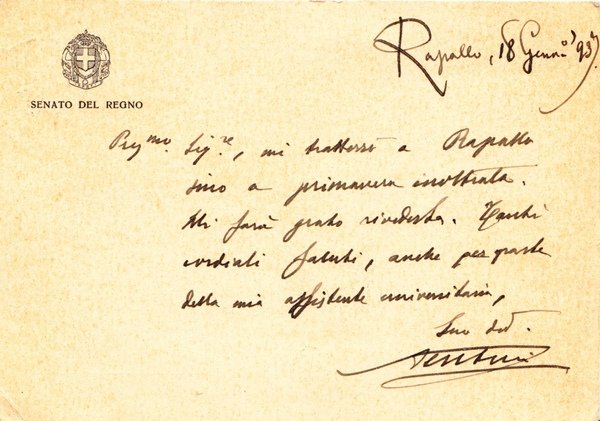 SENATO DEL REGNO
Rapallo, 18 Genn° '937
Preg.mo Sig.re, mi tratterrò a Rapallo
sino a primavera inoltrata.
Mi sarà grato rivederla. Tanti
cordiali saluti, anche per parte
della mia assistente universitaria,
Suo dev.
Venturi